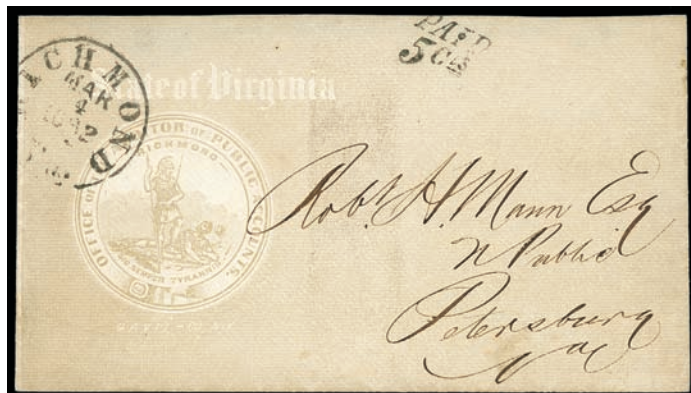 PAID
5 cts
RICHMOND
MAR
4
1862
State of Virginia
OFFICE OF AUDITOR OF PUBLIC ACCOUNTS.
RICHMOND
SIC SEMPER TYRANNIS
Robt. H. Mann Esq
N Public
Petersburg
Va